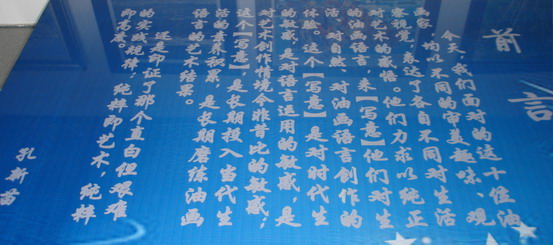 前言
今天,我们面对的这十位油
画家,均以不同的审美趣味、观
察视觉,表达了各自不同对生活
对艺术的感悟。他们力求以纯正
的油画语言,来【写意】他们对生
活,对自然、对油画语言创作的
体验。这个【写意】是对时代生
的敏感,是对语言运用的敏感,是
对艺术创作情境今非昔比的敏感,
这个【写意】,是长期投入当代生
活素养积累,是长期磨练油画
语言的艺术结果。
还是印证了那个直白但艰难
的实践规律:纯粹即艺术,纯粹
即写意。
孔新苗